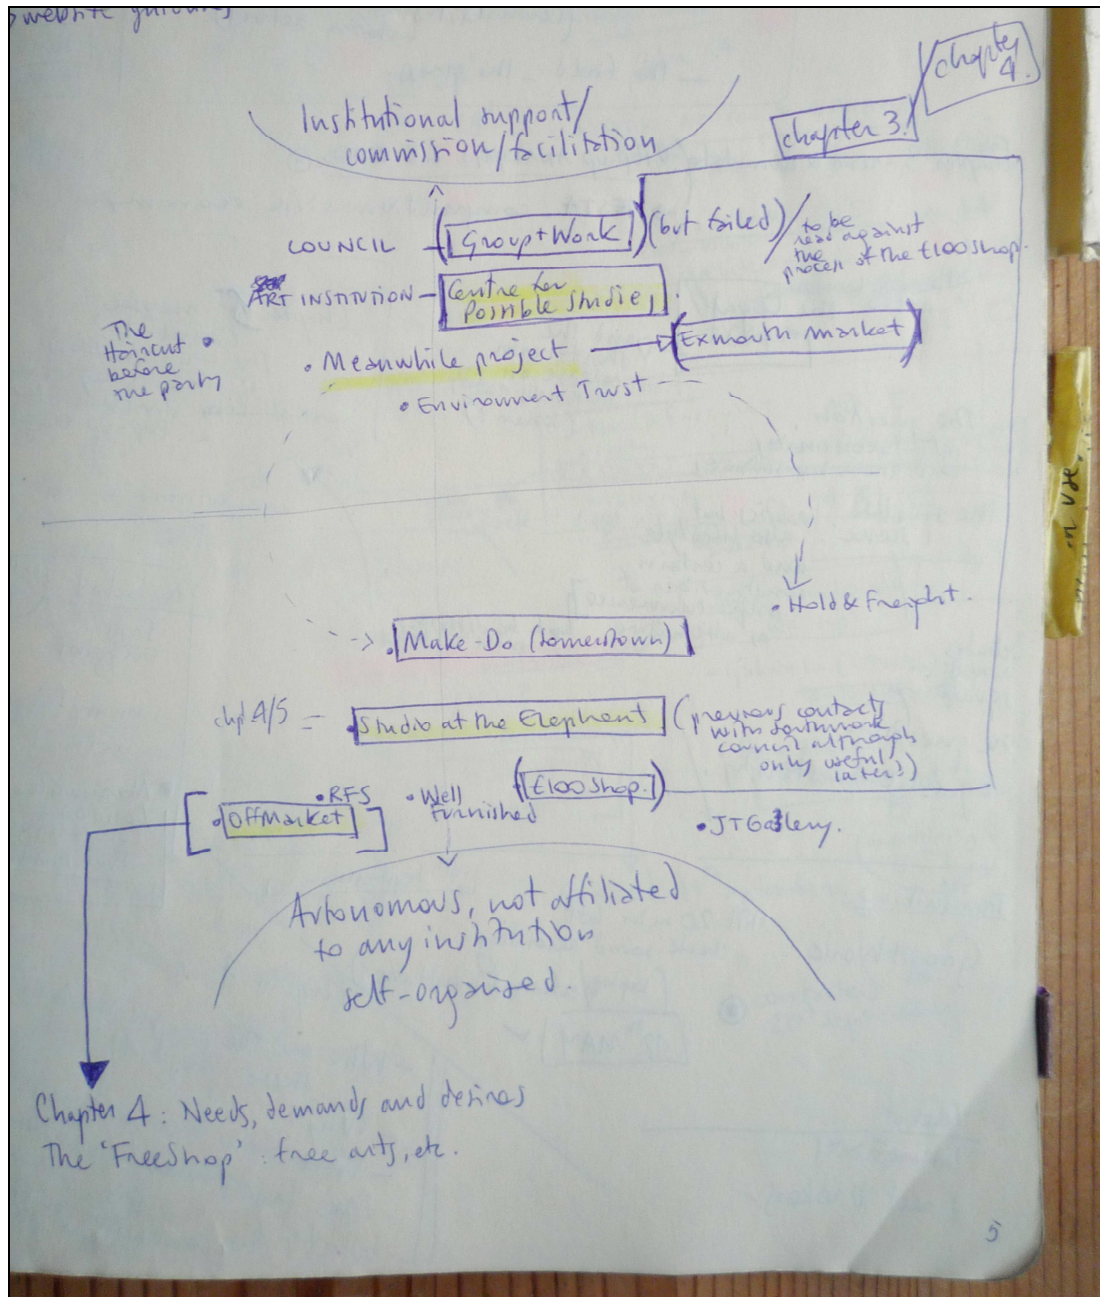 website
chapter
4.
chapter 3.
Institutional support/
commission/facilitation
COUNCIL
(Group+Work)
(but failed)
to be
read against
the
process of the £100 shop.
ART INSTITUTION
Centre for
Possible Studies
The
Haircut
before
the party
• Meanwhile project
(Exmouth market)
• Environment Trust
• Hold & Freight.
• Make-Do (Somerstown)
chpt 4/5 =
• Studio at the Elephant
(previous contacts
with Southwark
council although
only useful
later?)
• RFS
• Well
Furnished
(£100 Shop.)
[• OffMarket]
• JT Gallery.
Autonomous, not affiliated
to any institution
self-organised.
Chapter 4: Needs, demands and desires
The 'FreeShop': free arts, etc.
in use
5